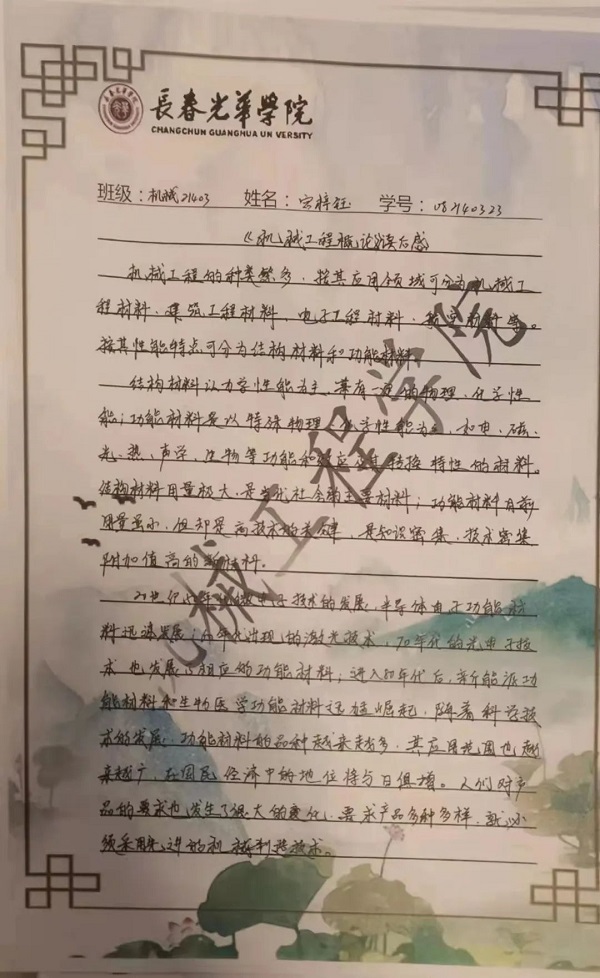 長春光華學院
CHANGCHUN GUANGHUA UN VERSITY
班级：机械21403 姓名：宋梓钰 学号：082140323
《机械工程概论》读后感
机械工程的种类繁多，按其应用领域可分为机械工
程材料、建筑工程材料、电子工程材料、航空材料等。
按其性能特点可分为结构材料和功能材料。
结构材料以力学性能为主，兼有一定的物理、化学性
能；功能材料是以特殊物理、化学性能为主，如电、磁、
光、热、声学、生物等功能和效应及其转换特性的材料。
结构材料用量极大，是当代社会的主要材料；功能材料目前
用量虽小，但却是高技术的关键，是知识密集、技术密集
附加值高的新材料。
20世纪50年代微电子技术的发展，半导体电子功能材
料迅速发展；60年代出现的激光技术，70年代的光电子技
术也发展了相应的功能材料；进入80年代后，新能源功
能材料和生物医学功能材料迅猛崛起，随着科学技
术的发展，功能材料的品种越来越多，其应用范围也越
来越广，在国民经济中的地位将与日俱增。人们对产
品的要求也发生了很大的变化，要求产品多种多样，就必
须采用先进的机械制造技术。
机械工程学院